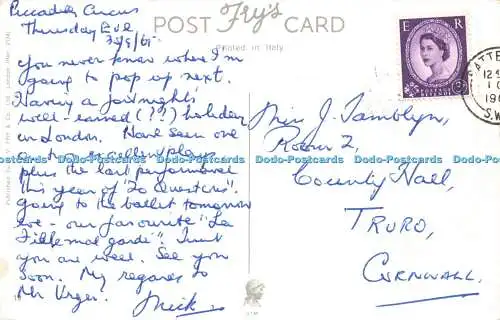 POST CARD
Fry's
Printed in Italy
Piccadilly Circus
Thursday Eve
You never know where I'm
going to pop up next.
Having a fortnight's
well-earned (??) holiday
in London. Have seen one
or two excellent plays
plus the last performance
this year of
Going to the ballet tomorrow
eve - our favourite "La
Fille mal gardé". Trust
you are well. See you
soon. My regards to
Mr
Mick
E R
POSTAGE REVENUE
3D
BATTE
12
1
19
S.W.
Miss J. Tamblyn,
Room 2,
County Hall,
TRURO,
CORNWALL.
Dodo-Postcards Dodo-Postcards Dodo-Postcards Dodo-Postcards
Dodo-Postcards Dodo-Postcards Dodo-Postcards Dodo-Postcards